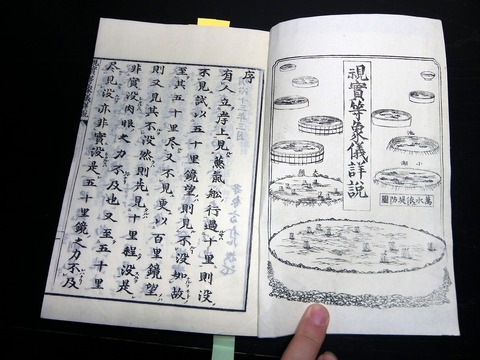 視實等象儀詳説
池
小湖
大湖
萬水依堤防圖
序
有人立岸上見蒸氣舩行過十里則没
不見試以五十里鏡望則見不没如故
至其五十里尽又不見更以百里鏡望
則又見其不没然則先見十里程没是
非實没肉眼之力不及也又至五十里
尽見没亦非實没是五十里鏡之力不及